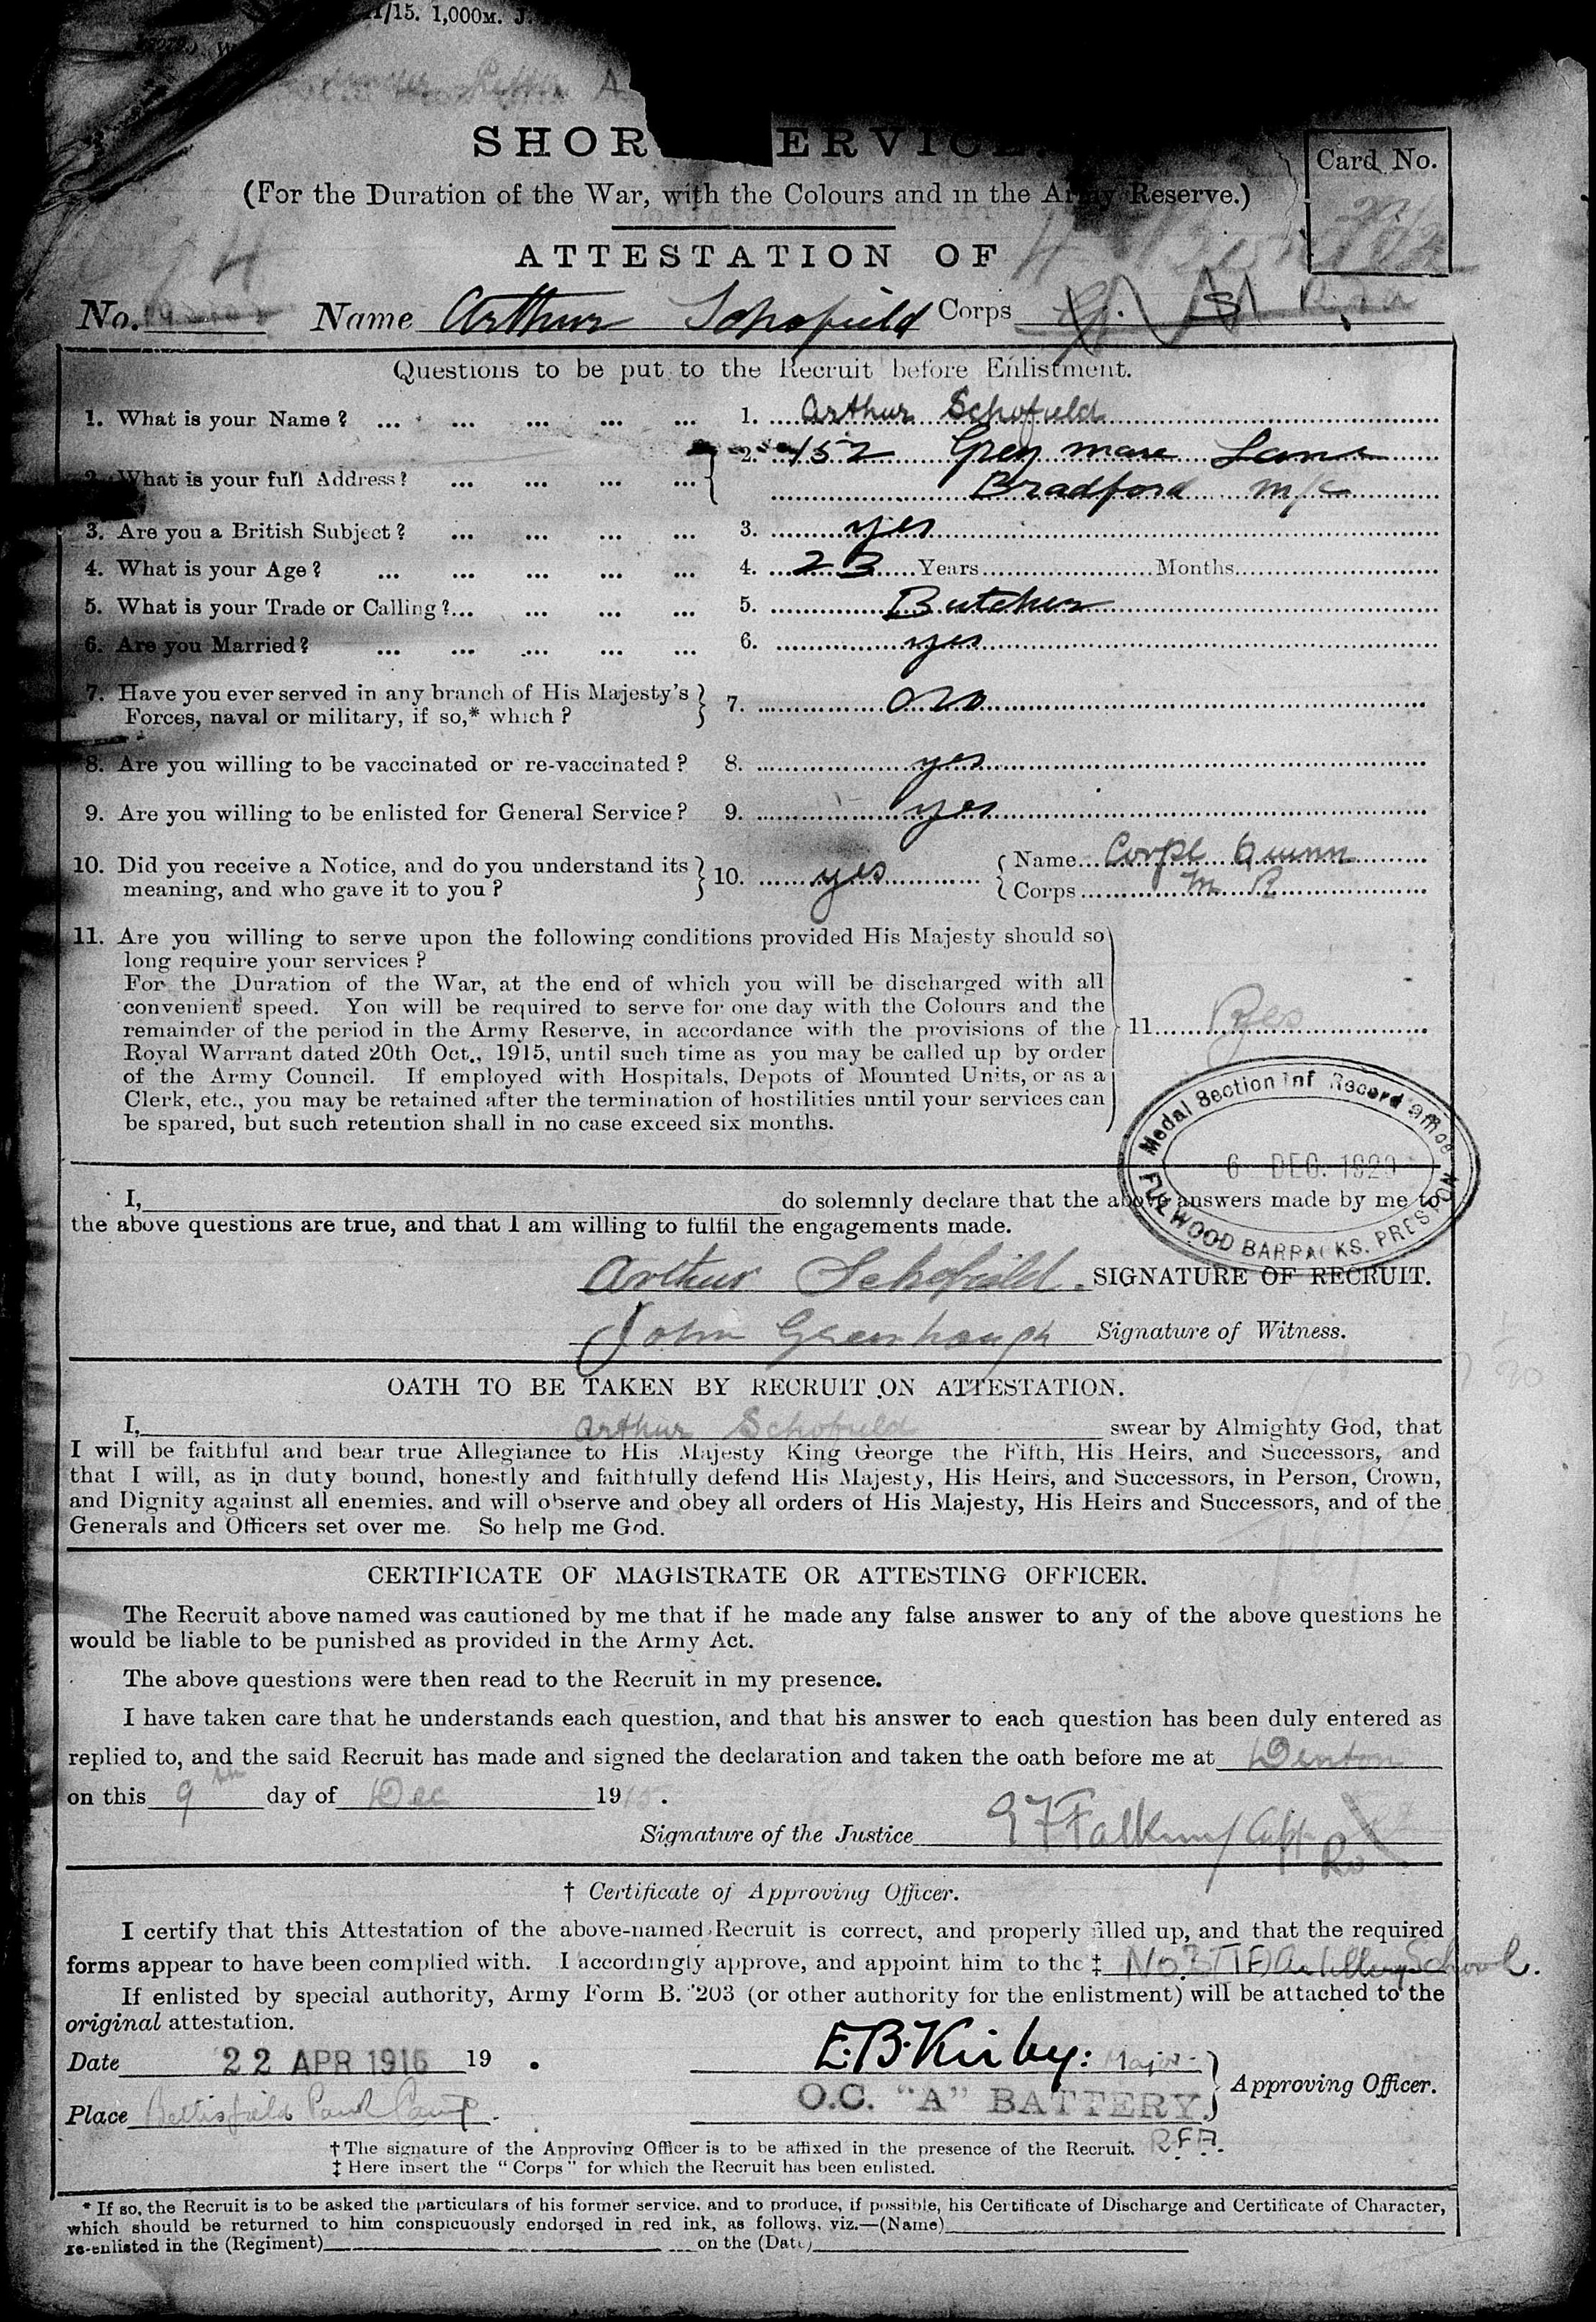 11/15. 1,000M. J.
SHOR ERVICE.
Card No.
(For the Duration of the War, with the Colours and in the Army Reserve.)
ATTESTATION OF
No. Name Arthur Schofield Corps
Questions to be put to the Recruit before Enlistment.
1. What is your Name? ... ... ... ... ... 1. Arthur Schofield
2. What is your full Address? ... ... ... ... 2. 152 Grey mare Lane
Bradford m/c
3. Are you a British Subject? ... ... ... ... 3. yes
4. What is your Age? ... ... ... ... ... 4. 23 Years Months
5. What is your Trade or Calling?... ... ... ... 5. Butcher
6. Are you Married? ... ... ... ... ... 6. yes
7. Have you ever served in any branch of His Majesty's
Forces, naval or military, if so,* which? 7. no
8. Are you willing to be vaccinated or re-vaccinated? 8. yes
9. Are you willing to be enlisted for General Service? 9. yes
10. Did you receive a Notice, and do you understand its 10. yes Name Corpl Quinn
meaning, and who gave it to you? Corps M R
11. Are you willing to serve upon the following conditions provided His Majesty should so
long require your services?
For the Duration of the War, at the end of which you will be discharged with all
convenient speed. You will be required to serve for one day with the Colours and the
remainder of the period in the Army Reserve, in accordance with the provisions of the 11 Yes
Royal Warrant dated 20th Oct., 1915, until such time as you may be called up by order
of the Army Council. If employed with Hospitals, Depots of Mounted Units, or as a
Clerk, etc., you may be retained after the termination of hostilities until your services can
be spared, but such retention shall in no case exceed six months.
Medal Section Inf Record Office
6 DEC. 1920
FULWOOD BARRACKS. PRESTON
I, do solemnly declare that the above answers made by me to
the above questions are true, and that I am willing to fulfil the engagements made.
Arthur Schofield. SIGNATURE OF RECRUIT.
John Greenhaugh Signature of Witness.
OATH TO BE TAKEN BY RECRUIT ON ATTESTATION.
I, Arthur Schofield swear by Almighty God, that
I will be faithful and bear true Allegiance to His Majesty King George the Fifth, His Heirs, and Successors, and
that I will, as in duty bound, honestly and faithfully defend His Majesty, His Heirs, and Successors, in Person, Crown,
and Dignity against all enemies, and will observe and obey all orders of His Majesty, His Heirs and Successors, and of the
Generals and Officers set over me. So help me God.
CERTIFICATE OF MAGISTRATE OR ATTESTING OFFICER.
The Recruit above named was cautioned by me that if he made any false answer to any of the above questions he
would be liable to be punished as provided in the Army Act.
The above questions were then read to the Recruit in my presence.
I have taken care that he understands each question, and that his answer to each question has been duly entered as
replied to, and the said Recruit has made and signed the declaration and taken the oath before me at Denton
on this 9th day of Dec 1915.
Signature of the Justice
† Certificate of Approving Officer.
I certify that this Attestation of the above-named Recruit is correct, and properly filled up, and that the required
forms appear to have been complied with. I accordingly approve, and appoint him to the ‡ No 3 TF Artillery School.
If enlisted by special authority, Army Form B. 203 (or other authority for the enlistment) will be attached to the
original attestation.
Date 22 APR 1916 19 . E.B. Kirby: Major
O.C. "A" BATTERY. Approving Officer.
Place Bettisfield Park Camp.
† The signature of the Approving Officer is to be affixed in the presence of the Recruit. R.F.A.
‡ Here insert the "Corps" for which the Recruit has been enlisted.
* If so, the Recruit is to be asked the particulars of his former service, and to produce, if possible, his Certificate of Discharge and Certificate of Character,
which should be returned to him conspicuously endorsed in red ink, as follows, viz.—(Name)
re-enlisted in the (Regiment) on the (Date)